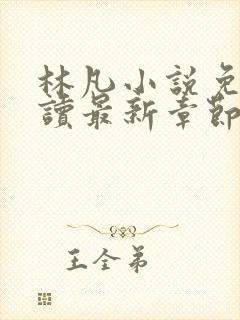 林凡小說免
讀最新章節
王全弟